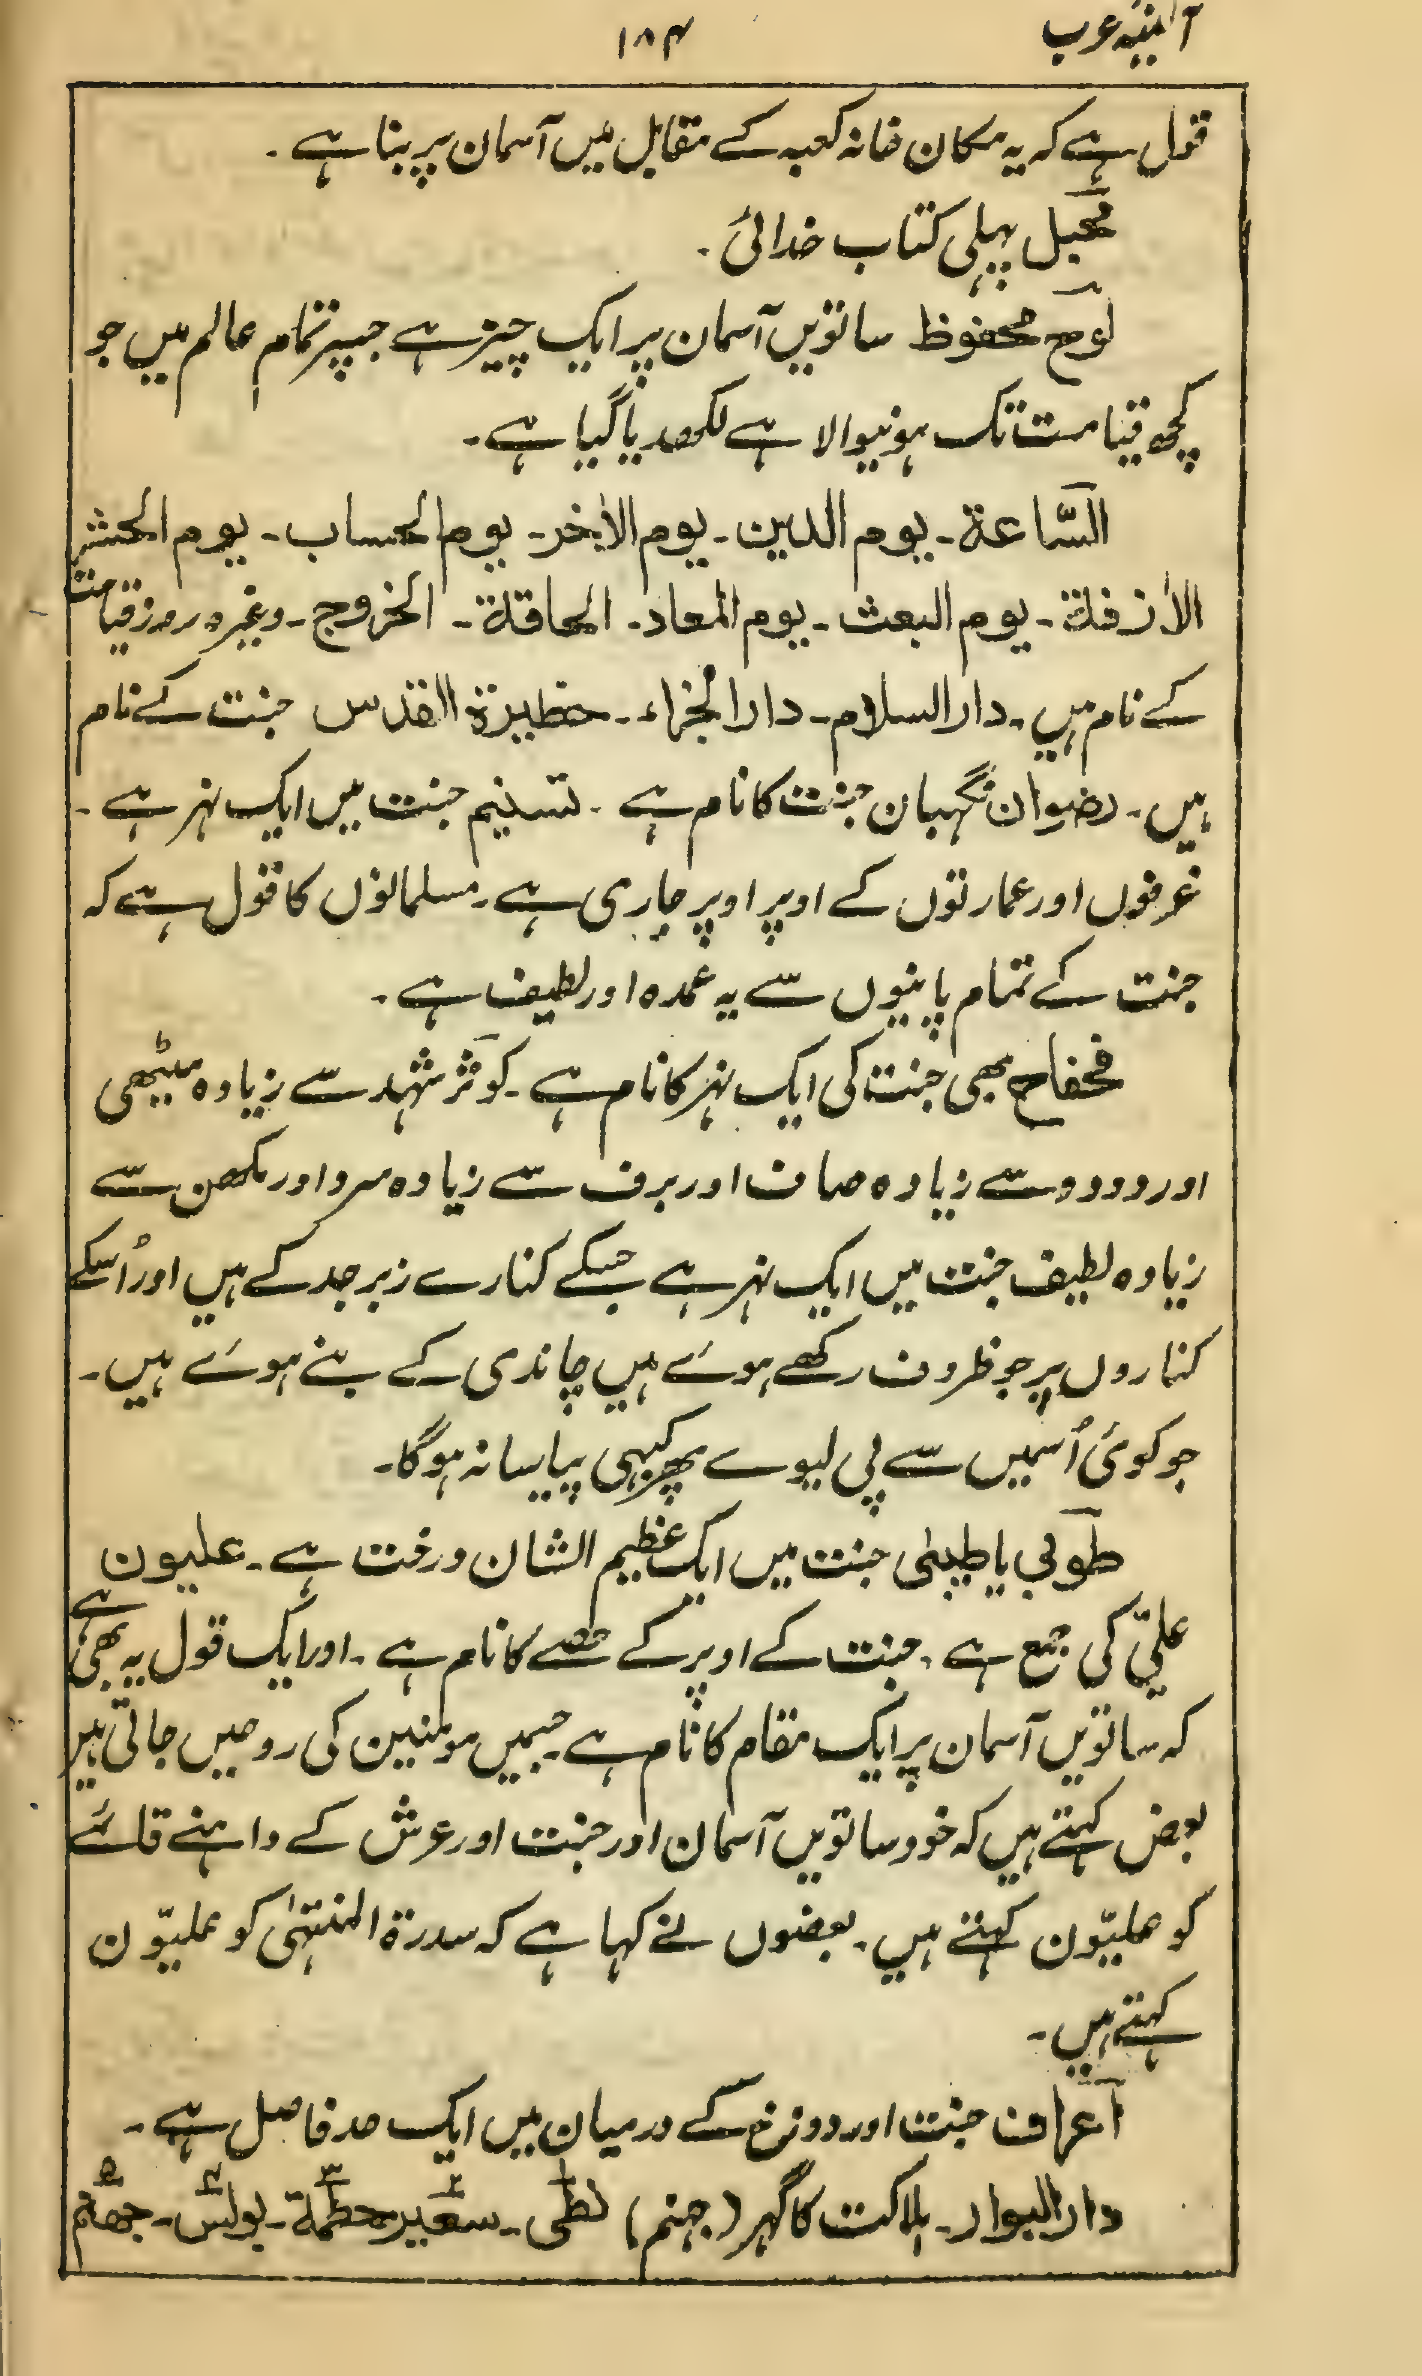 آئینہ عرب
۱۸۴
قول ہے کہ یہ مکان خانہ کعبہ کے مقابل میں آسمان پر بنا ہے ۔
پہلی کتاب خدائی ۔
لوح محفوظ ساتویں آسمان پر ایک چیز ہے جسپر تمام عالم میں جو
کچھ قیامت تک ہونیوالا ہے لکھدیا گیا ہے ۔
السّاعة ۔ یوم الدین ۔ یوم الاٰخر ۔ یوم الحساب ۔ یوم الحشر
الاٰزفة ۔ یوم البعث ۔ یوم المعاد ۔ الحاقة ۔ الخروج ۔ وغیرہ روز قیامت
کے نام ہیں ۔ دار السلام ۔ دار الجزاء ۔ حظیرة القدس جنت کے نام
ہیں ۔ رضوان نگہبان جنت کا نام ہے ۔ تسنیم جنت میں ایک نہر ہے ۔
غرفوں اور عمارتوں کے اوپر اوپر جاری ہے ۔ مسلمانوں کا قول ہے کہ
جنت کے تمام پانیوں سے یہ عمدہ اور لطیف ہے ۔
بھی جنت کی ایک نہر کا نام ہے ۔ کوثر شہد سے زیادہ میٹھی
اور دودہ سے زیادہ صاف اور برف سے زیادہ سرد اور مکھن سے
زیادہ لطیف جنت میں ایک نہر ہے جسکے کنارے زبرجد کے ہیں اور اُسکے
کناروں پر جو ظروف رکھے ہوئے ہیں چاندی کے بنے ہوئے ہیں ۔
جو کوئی اُسمیں سے پی لیوے پھر کبہی پیاسا نہ ہوگا ۔
طوبی یا طیبیٰ جنت میں ایک عظیم الشان درخت ہے ۔ علیون
علیّ کی جمع ہے ۔ جنت کے اوپر کے حصے کا نام ہے ۔ اور ایک قول یہ بھی ہے
کہ ساتویں آسمان پر ایک مقام کا نام ہے جسمیں مومنین کی روحیں جاتی ہیں
بعض کہتے ہیں کہ خود ساتویں آسمان اور جنت اور عرش کے داہنے قائمے
کو علیّون کہتے ہیں ۔ بعضوں نے کہا ہے کہ سدرة المنتہٰی کو علیّون
کہتے ہیں ۔
اعراف جنت اور دوزخ کے درمیان میں ایک حد فاصل ہے ۔
دار البوار ۔ ہلاکت کا گہر (جہنم) لظٰی ۔ سعیر ۲ حطمة ۳ ۔ بولس ۴ ۔ جهنم ۵